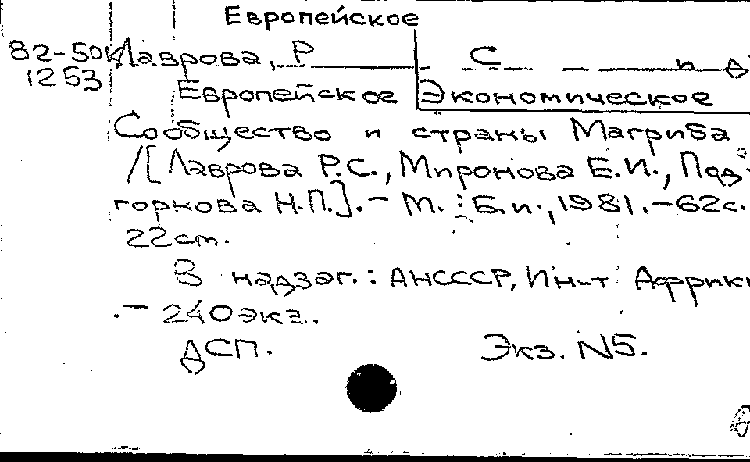 Европейское
82-50К Лаврова, Р С и д
1253 Европейское Экономическое
Сообщество и страны Магриба
/[Лаврова Р.С., Миронова Е.И., Под-
горнова Н.П.].- М. : Б.и., 1981.-62с.
22см.
В надзаг.: АНСССР, Ин-т Африки
.- 240экз.
ДСП. Экз. N5.